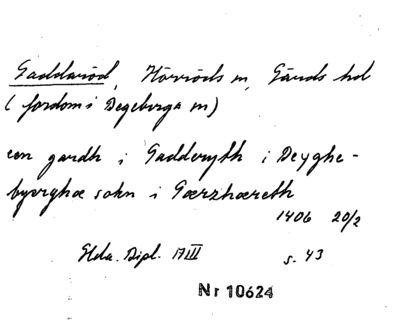 Gaddaröd, Hörröds sn, Gärds hd
(fordom i Degeberga sn)
een gardh i Gadderyth i Deyghe-
byerghæ sokn i Gærzhæreth
1406 20/2
Æld. Dipl. 17 III s. 43
Nr 10624